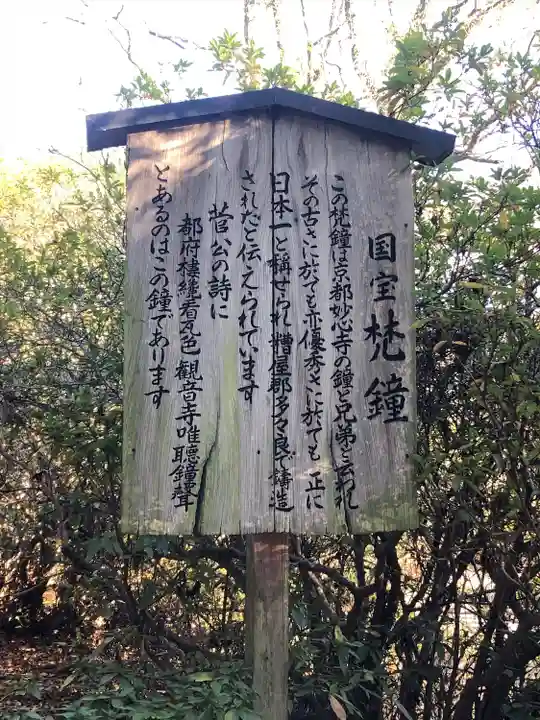 国宝 梵鐘
この梵鐘は京都妙心寺の鐘と兄弟と云われ
その古さに於ても亦優秀さに於ても 正に
日本一と称せられ糟屋郡多々良で鋳造
されたと伝えられています
菅公の詩に
都府楼纔看瓦色 観音寺唯聴鐘聲
とあるのはこの鐘であります